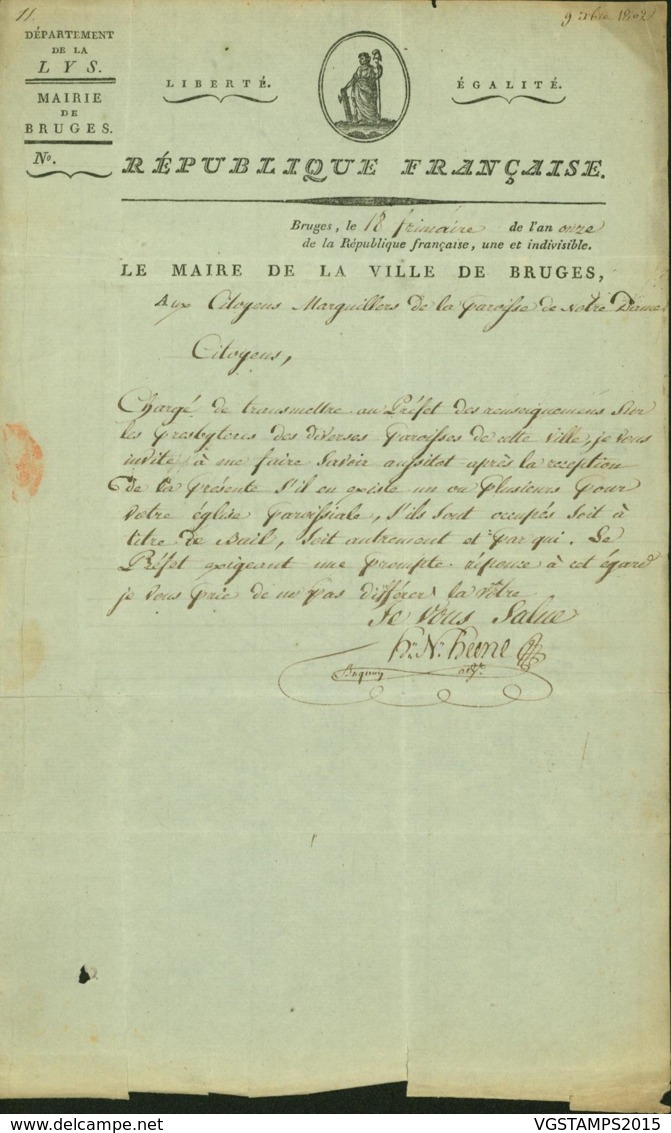 11.
9 xbre 1802
DÉPARTEMENT
DE LA
LYS.
MAIRIE
DE
BRUGES.
No.
LIBERTÉ.
ÉGALITÉ.
RÉPUBLIQUE FRANÇAISE.
Bruges, le 18 frimaire de l'an onze
de la République française, une et indivisible.
LE MAIRE DE LA VILLE DE BRUGES,
Aux Citoyens Marguillers de la paroisse de Notre Dame
Citoyens,
Chargé de transmettre au Préfet des renseignemens sur
les presbyteres des diverses paroisses de cette ville, je vous
invite à me faire savoir aussitot après la reception
De la présente s'il en existe un ou plusieurs pour
votre église paroissiale, s'ils sont occupés soit à
titre de Bail, soit autrement et par qui. Le
Préfet exigeant une prompte réponse à cet égard
je vous prie de ne pas différer la vôtre
Je vous Salue
VGSTAMPS2015